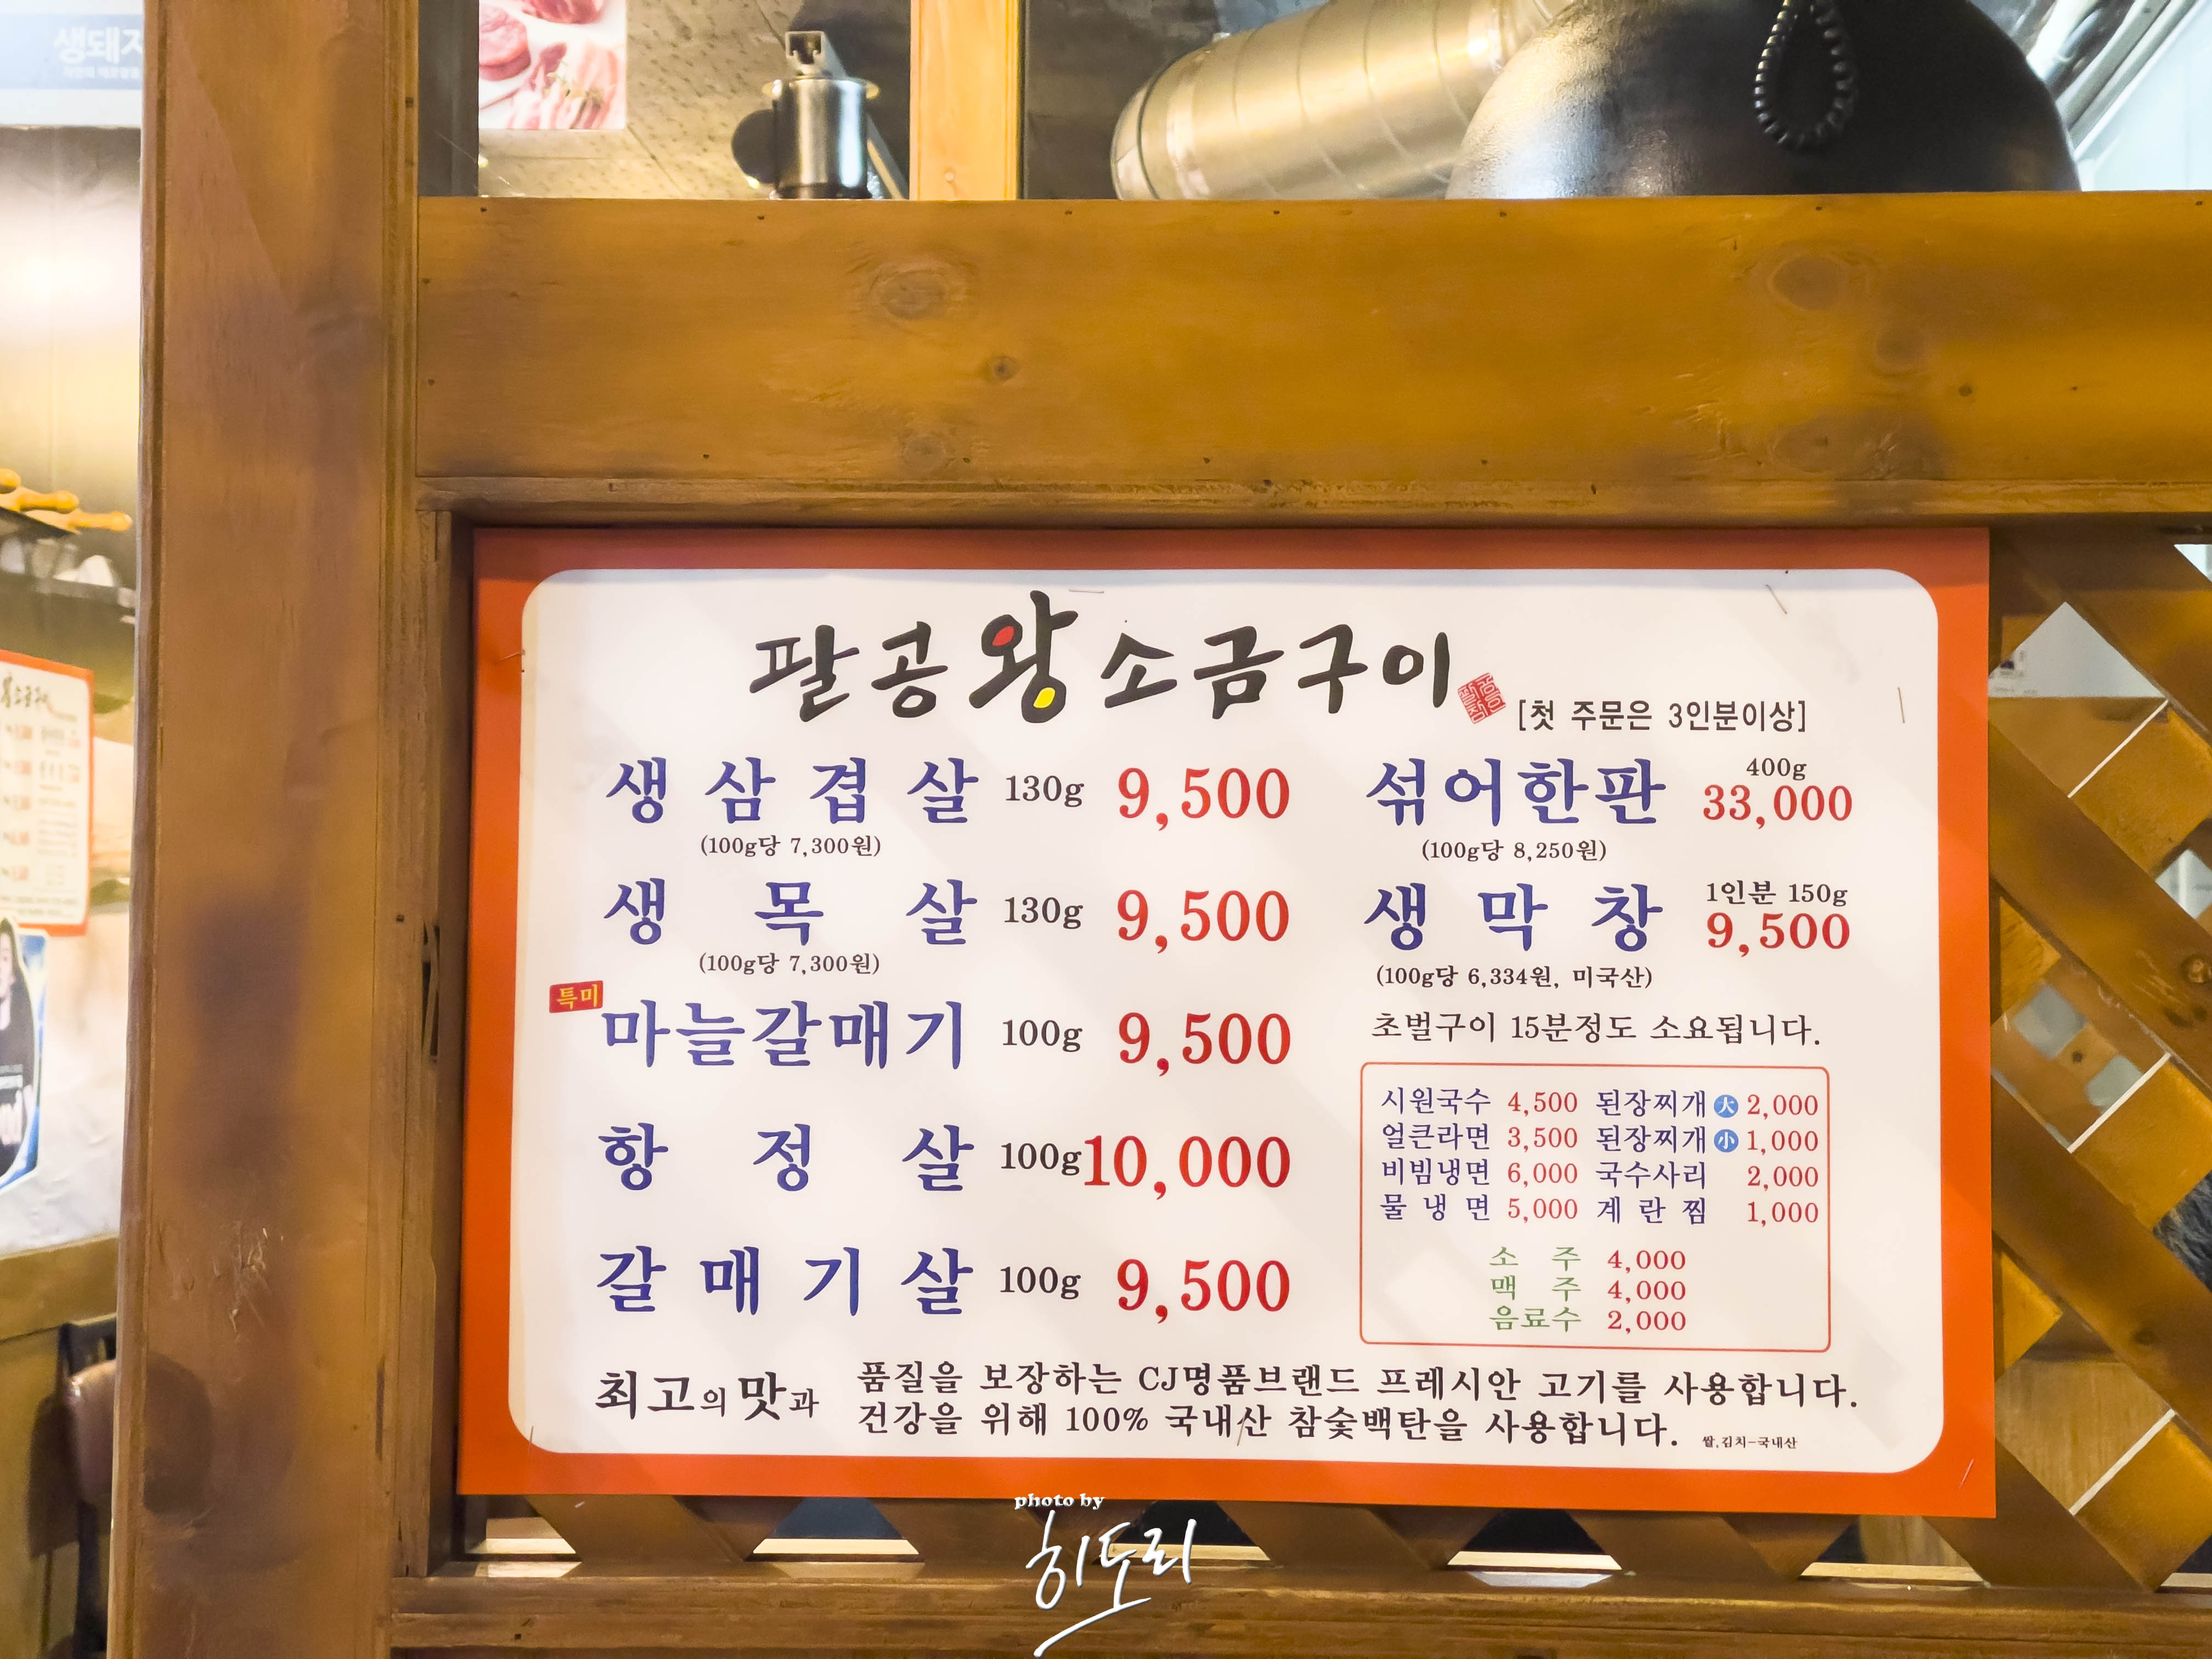 생돼지
팔공왕소금구이
[첫 주문은 3인분이상]
생삼겹살 130g 9,500
(100g당 7,300원)
생목살 130g 9,500
(100g당 7,300원)
특미
마늘갈매기 100g 9,500
항정살 100g 10,000
갈매기살 100g 9,500
섞어한판 400g 33,000
(100g당 8,250원)
생막창 1인분 150g 9,500
(100g당 6,334원, 미국산)
초벌구이 15분정도 소요됩니다.
시원국수 4,500 된장찌개 大 2,000
얼큰라면 3,500 된장찌개 小 1,000
비빔냉면 6,000 국수사리 2,000
물냉면 5,000 계란찜 1,000
소주 4,000
맥주 4,000
음료수 2,000
최고의 맛과
품질을 보장하는 CJ명품브랜드 프레시안 고기를 사용합니다.
건강을 위해 100% 국내산 참숯백탄을 사용합니다.
쌀,김치-국내산
photo by
히도리